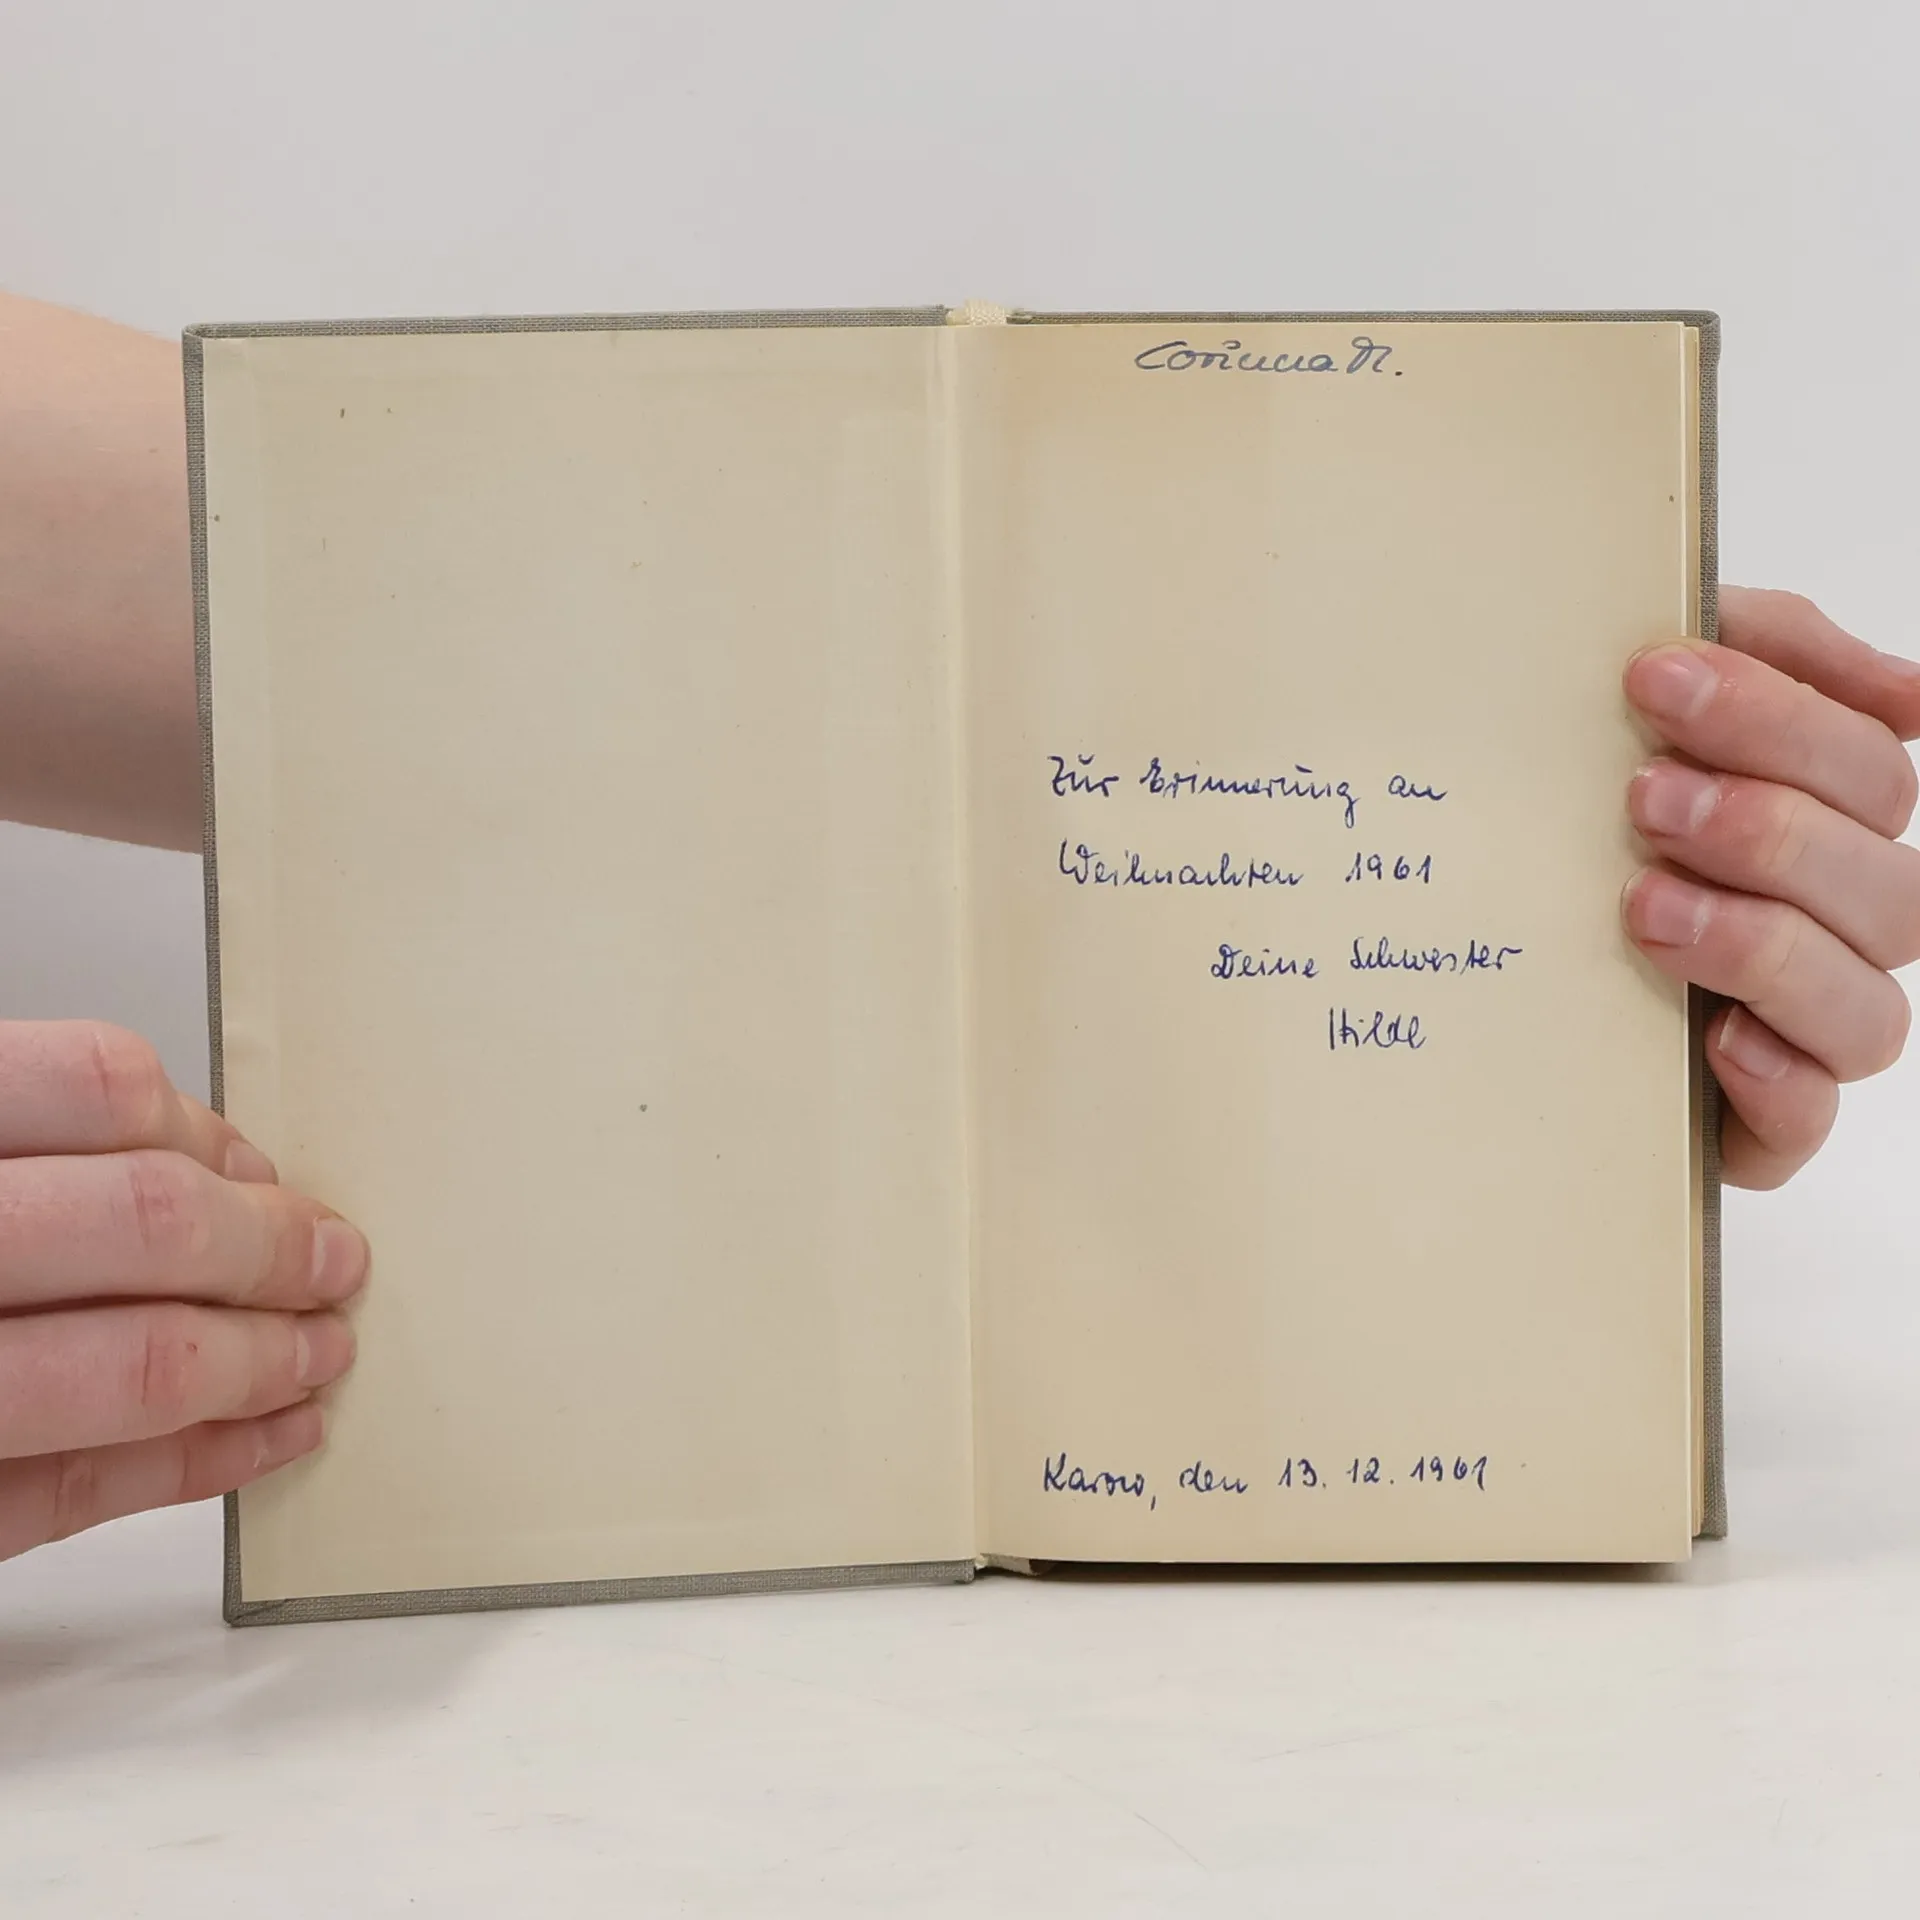 Corinna M.
Zur Erinnerung an
Weihnachten 1961
Deine Schwester
Hilde
Karow, den 13. 12. 1961